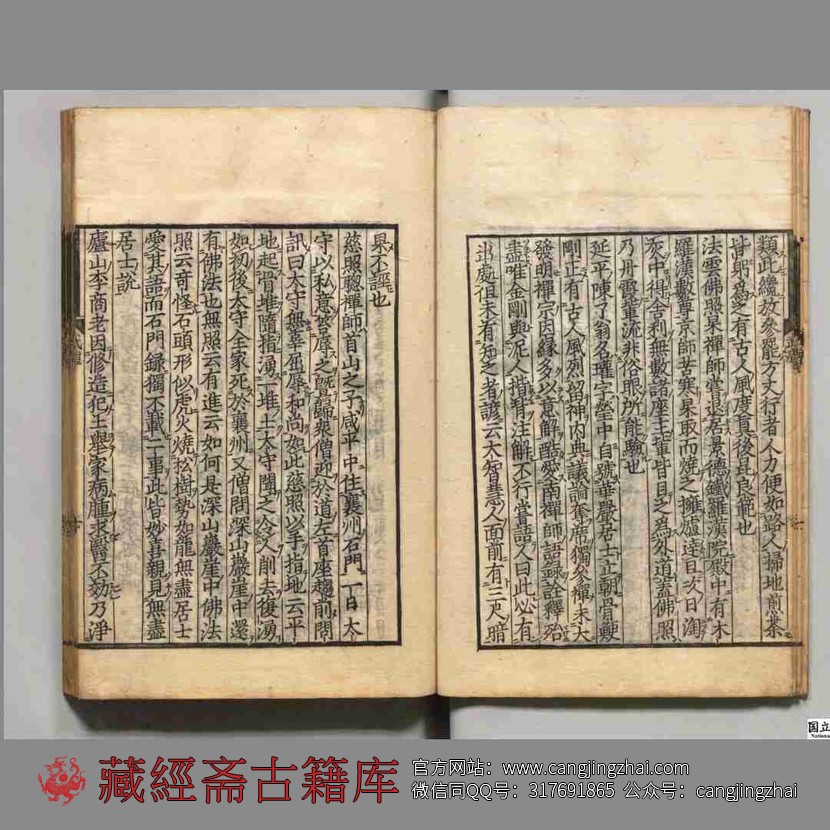 類此纔放參罷方丈行者人力便如路人掃地煎茶
皆躬爲之有古人風度眞後昆良範也
法雲佛照杲禪師嘗退居景德鐵羅漢院殿中有木
羅漢數尊京師苦寒杲取而燒之擁爐達旦次日淘
灰中得舍利無數諸座主輩皆目之爲外道蓋佛照
乃丹霞輩流非俗眼所能驗也
延平陳了翁名瓘字瑩中自號華嚴居士立朝骨鯁
剛正有古人風烈留神內典議論奪席獨參禪未大
發明禪宗因緣多以意解酷愛南禪師語錄詮釋殆
盡唯金剛與泥人揩背注解不行嘗語人曰此必有
出處但未有知之者諺云大智慧人面前有三尺暗
果不誣也
慈照聰禪師首山之子咸平中住襄州石門一日太
守以私意笞辱之曁歸衆僧迎於道左首座趨前問
訊曰太守無辜屈辱和尚如此慈照以手指地云平
地起骨堆隨指湧一堆土太守聞之令人削去復湧
如初後太守全家死於襄州又僧問深山巖崖中還
有佛法也無照云有進云如何是深山巖崖中佛法
照云奇怪石頭形似虎火燒松樹勢如龍無盡居士
愛其語而石門錄獨不載二事此皆妙喜親見無盡
居士說
廬山李商老因修造犯土舉家病腫求醫不効乃淨
国立
National
藏經斋古籍库
官方网站：www.cangjingzhai.com
微信同QQ号：317691865 公众号：cangjingzhai